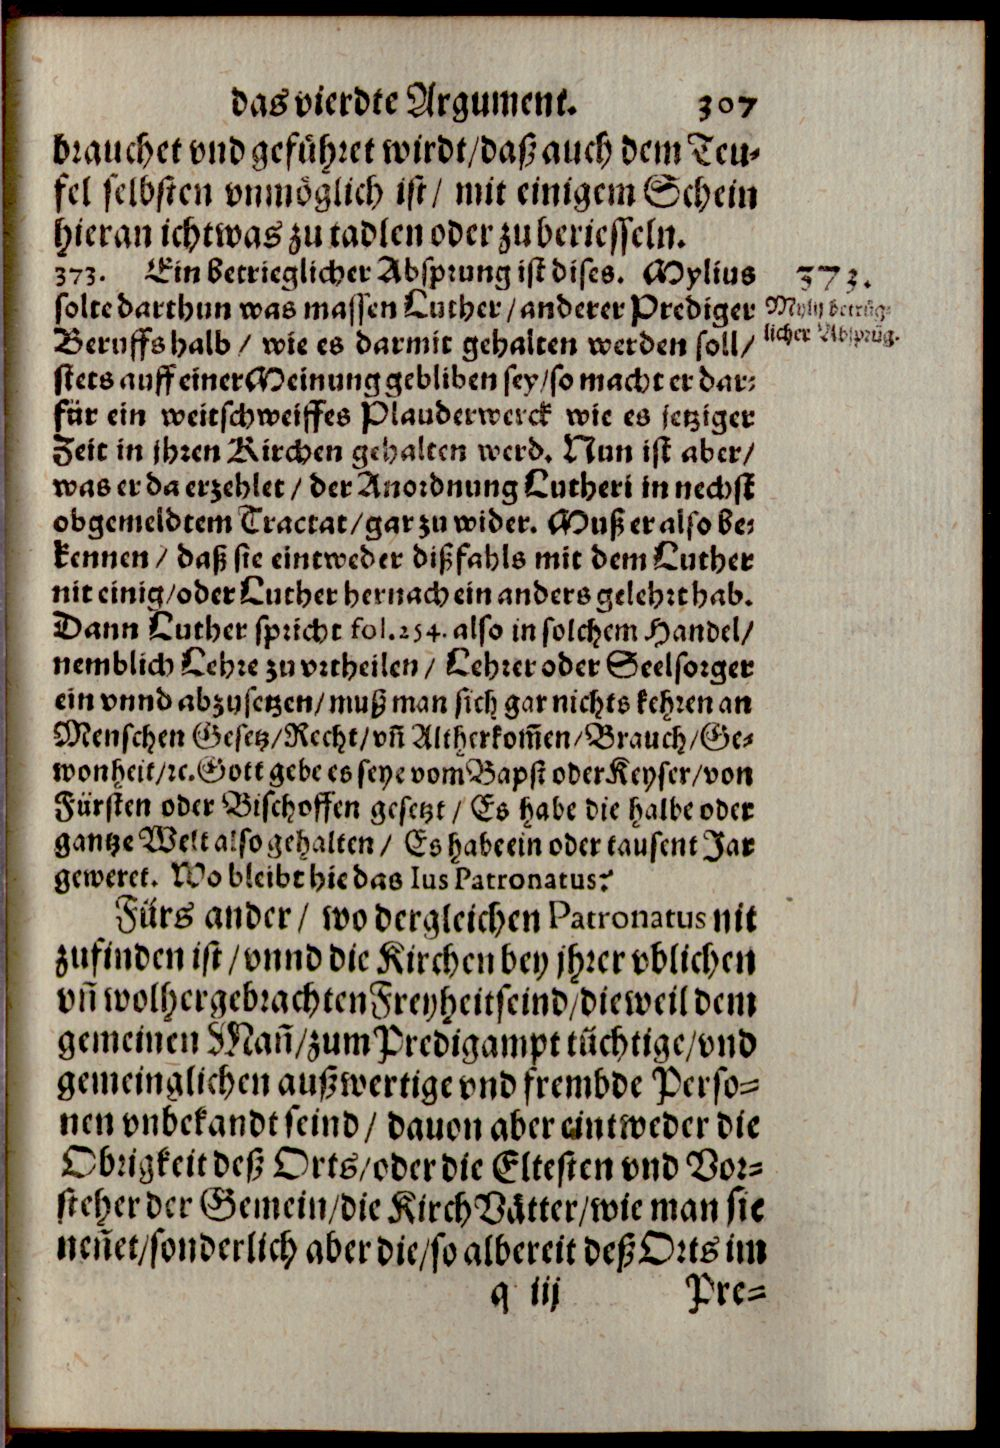 das vierdte Argument. 307
brauchet vnd geführet wirdt/daß auch dem Teu-
fel selbsten vnmöglich ist/ mit einigem Schein
hieran ichtwas zu tadlen oder zu beriesseln.
373. Ein betrieglicher Absprung ist dises. Mylius
373.
solte darthun was massen Luther/anderer Prediger
Mylij betrüg-
Beruffs halb/ wie es darmit gehalten werden soll/
licher Absprüg.
stets auff einer Meinung gebliben sey/so macht er dar-
für ein weitschweiffes Plauderwerck wie es jetziger
Zeit in jhren Kirchen gehalten werd. Nun ist aber/
was er da erzehlet/ der Anordnung Lutheri in nechst
obgemeldtem Tractat/gar zu wider. Muß er also be-
kennen/ daß sie eintweder dißfahls mit dem Luther
nit einig/oder Luther hernach ein anders gelehrt hab.
Dann Luther spricht fol.254. also in solchem Handel/
nemblich Lehre zu vrtheilen/ Lehrer oder Seelsorger
ein vnnd abzusetzen/ muß man sich gar nichts kehren an
Menschen Gesetz/Recht/vñ Altherkom̃en/Brauch/Ge-
wonheit/ꝛc. Gott gebe es seye vom Bapst oder Keyser/von
Fürsten oder Bischoffen gesetzt/ Es habe die halbe oder
gantze Welt also gehalten/ Es habe ein oder tausent Jar
geweret. Wo bleibt hie das Ius Patronatus?
Fürs ander/ wo dergleichen Patronatus nit
zufinden ist/vnnd die Kirchen bey jhrer vblichen
vñ wolhergebrachten Freyheit seind/dieweil dem
gemeinen Mañ/zum Predigampt tüchtige/vnd
gemeinglichen außwertige vnd frembde Perso-
nen vnbekandt seind/ dauon aber eintweder die
Obrigkeit deß Orts/oder die Eltesten vnd Vor-
steher der Gemein/die Kirch Vätter/wie man sie
neñet/sonderlich aber die/so albereit deß Orts im
q iij Pre-